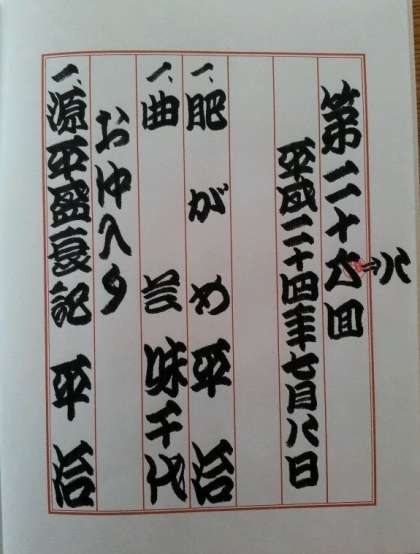 第二十六回⇒八
平成二十四年七月八日
一、肥がめ 平治
一、曲芸 味千代
お仲入り
一、源平盛衰記 平治